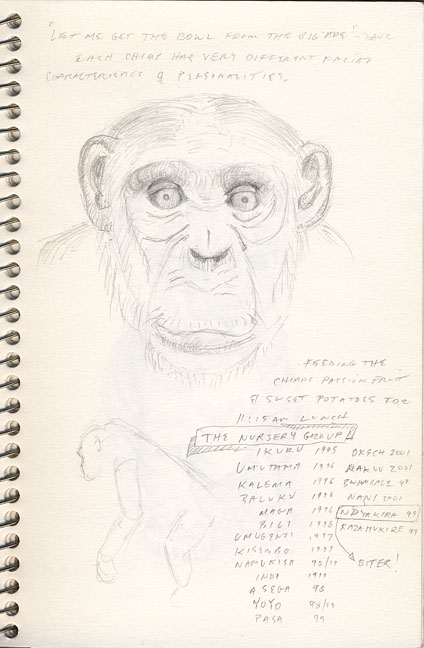 "LET ME GET THE BOWL FROM THE BIG APE" - DAVE
EACH CHIMP HAS VERY DIFFERENT FACIAL
CHARACTERISTICS & PERSONALITIES.
FEEDING THE
CHIMPS PASSION FRUIT
& SWEET POTATOES FOR
11:15 AM LUNCH
THE NURSERY GROUP
IKURU 1995 OKECH 2001
UMUTAMA 1996 2001
KALEMA 1996 BWAMBALE 99
BALUKU 1996 NANI 2001
MAWA 1996 NDYAKIRA 99
BILI 1998 KAZAHUKIRE 99
UMUGENZI 1997
KISEMBO 1997
NAMUKISA 98/99 BITER!
INDI 1999
ASEGA 98
YOYO 98/99
PASA 99